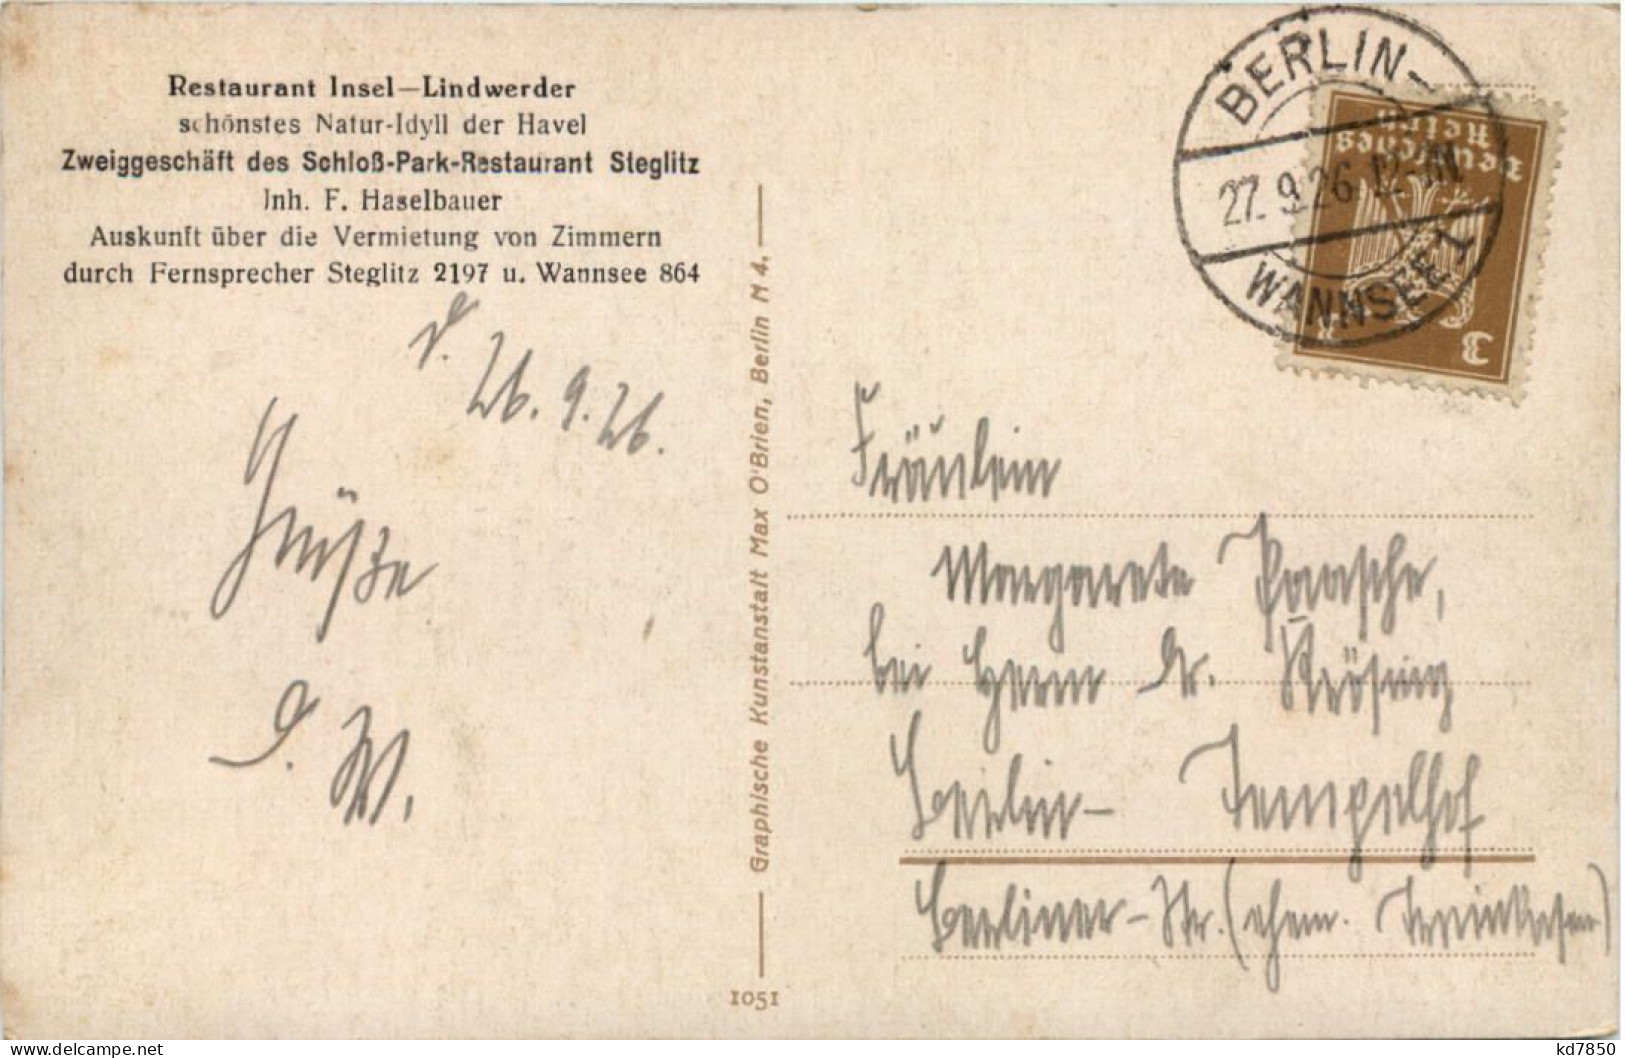 Restaurant Insel—Lindwerder
schönstes Natur-Idyll der Havel
Zweiggeschäft des Schloß-Park-Restaurant Steglitz
Jnh. F. Haselbauer
Auskunft über die Vermietung von Zimmern
durch Fernsprecher Steglitz 2197 u. Wannsee 864
d. 26. 9. 26.
Grüße
D. W.
Graphische Kunstanstalt Max O'Brien, Berlin N 4.
1051
BERLIN-
27. 9. 26. 12-
WANNSEE 1
Deutsches
Reich
3
Fräulein
Margarete Paasche,
bei Herrn Dr. Krösing
Berlin- Tempelhof
Berliner-Str. (ehem.
delcampe.net
kd7850